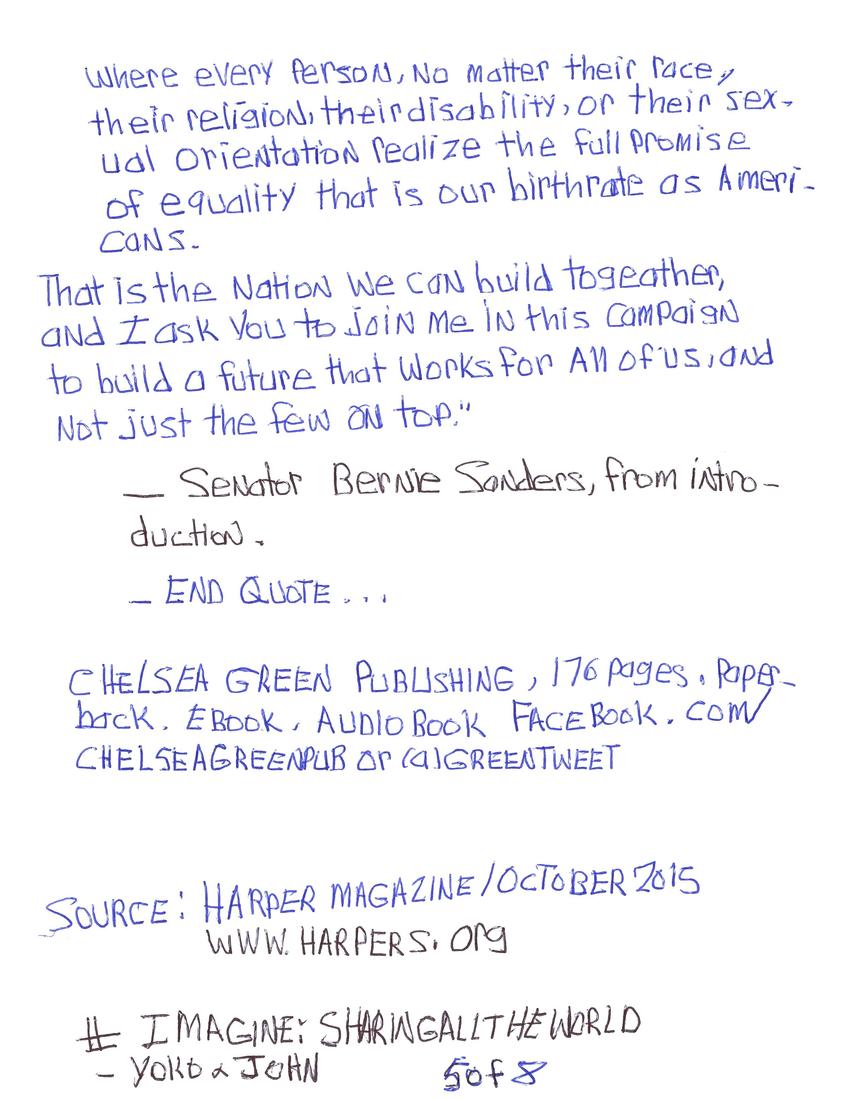 Where every Person, No matter their race,
their religion, their disability, or their sex-
ual orientation realize the full promise
of equality that is our birthrate as Ameri-
cans.
That is the Nation We can build togeather,
and I ask you to join me in this campaign
to build a future that works for All of us, and
Not just the few on top."
— Senator Bernie Sanders, from intro-
duction.
— END QUOTE...
CHELSEA GREEN PUBLISHING, 176 pages. Paper-
back. EBOOK, AUDIO BOOK FACEBOOK.COM/
CHELSEAGREENPUB or (a)GREENTWEET
SOURCE: HARPER MAGAZINE/OCTOBER 2015
WWW.HARPERS.Org
# IMAGINE: SHARINGALLTHEWORLD
- YOKO & JOHN 5 of 8